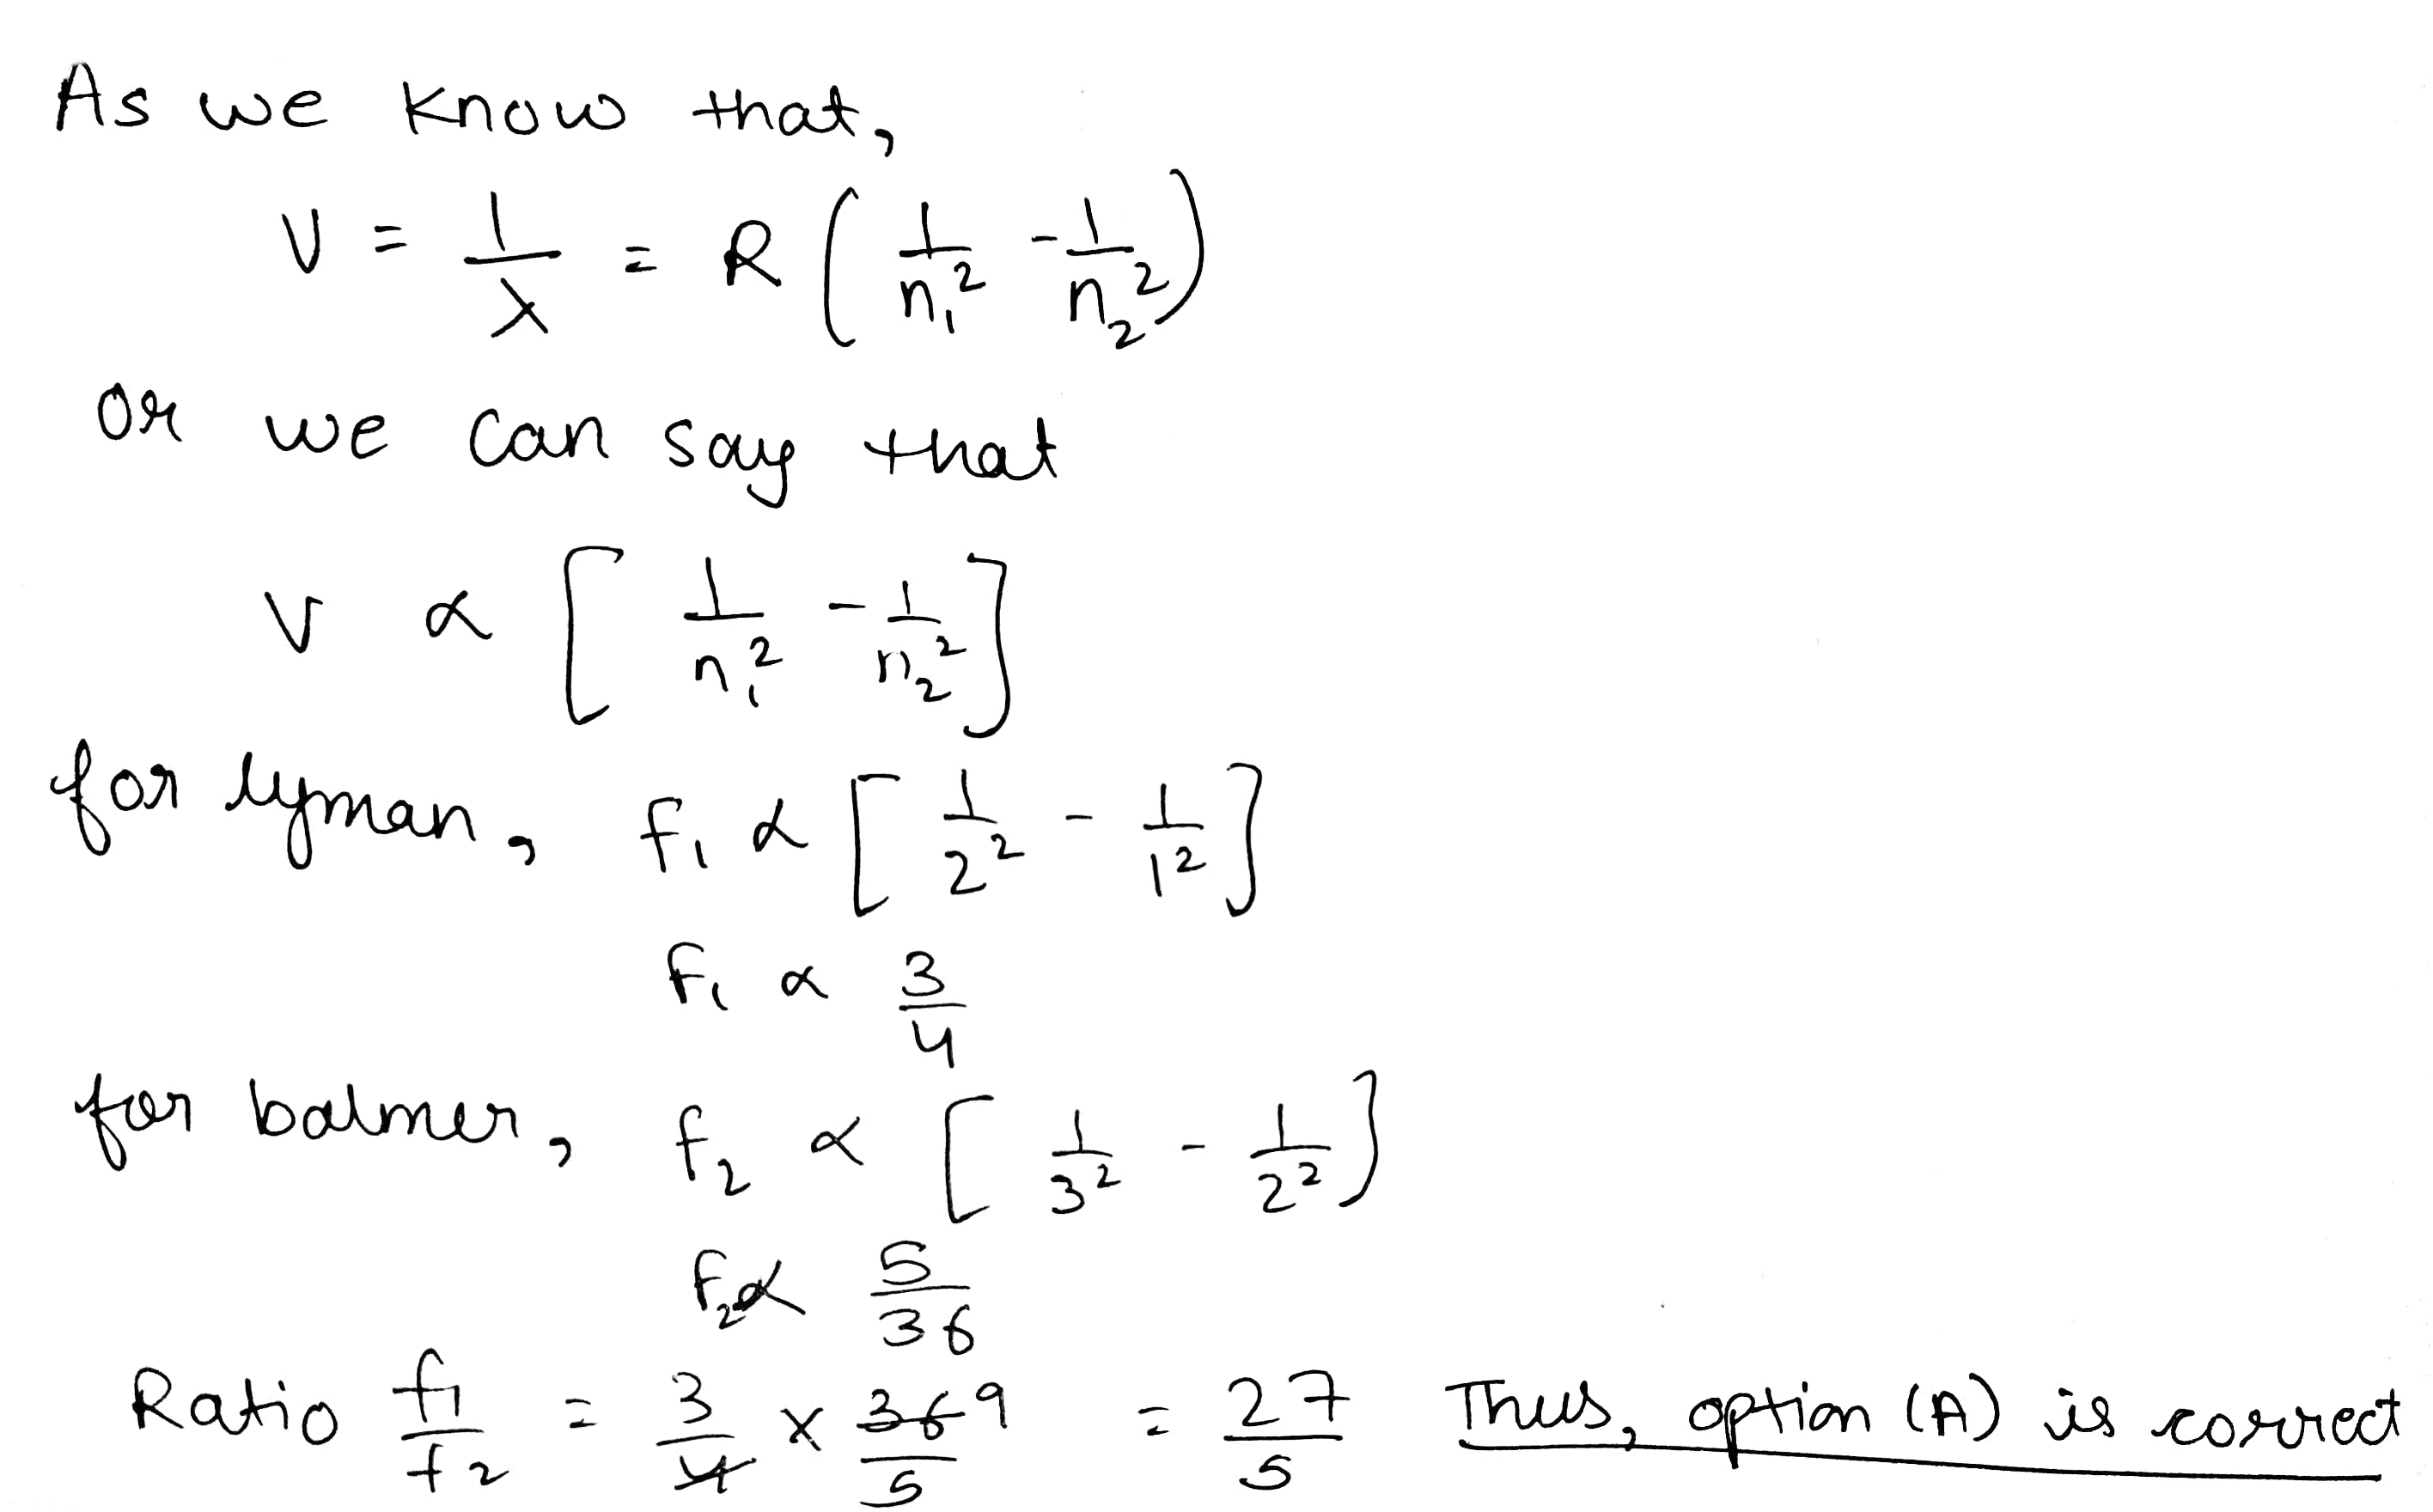 As we know that,
V = 1/λ = R ( 1/n₁² - 1/n₂² )
or we can say that
V α [ 1/n₁² - 1/n₂² ]
for lyman, f₁ α [ 1/2² - 1/1² ]
f₁ α 3/4
for balmer, f₂ α [ 1/3² - 1/2² )
f₂ α 5/36
Ratio f₁/f₂ = 3/4 x 36/5 9 = 27/5 Thus, option (A) is correct